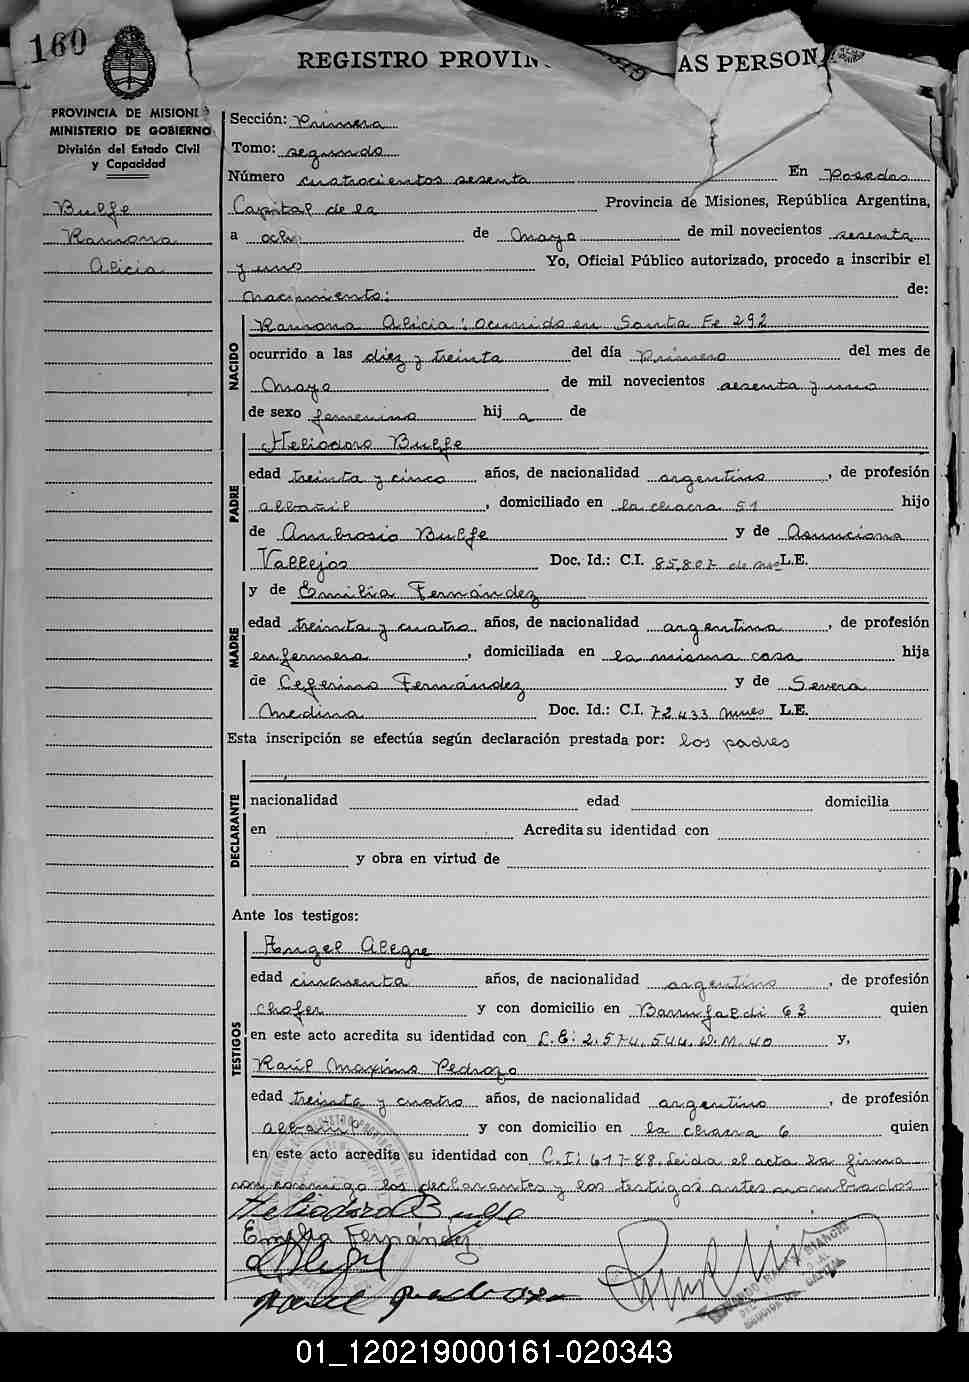 160
REGISTRO PROVIN AS PERSON
PROVINCIA DE MISIONE
MINISTERIO DE GOBIERNO
División del Estado Civil
y Capacidad
Bulfe
Ramona
Alicia
Sección: Primera
Tomo: segundo
Número cuatrocientos sesenta En Posadas
Capital de la Provincia de Misiones, República Argentina,
a ocho de Mayo de mil novecientos sesenta
y uno Yo, Oficial Público autorizado, procedo a inscribir el
nacimiento: de:
NACIDO
Ramona Alicia: ocurrido en Santa Fe 292
ocurrido a las diez y treinta del día Primero del mes de
Mayo de mil novecientos sesenta y uno
de sexo femenino hij a de
PADRE
Heliodoro Bulfe
edad treinta y cinco años, de nacionalidad argentino, de profesión
albañil, domiciliado en la chacra 51 hijo
de Ambrosio Bulfe y de Asunciona
Vallejos Doc. Id.: C.I. 85.807 de L.E.
y de Emilia Fernández
MADRE
edad treinta y cuatro años, de nacionalidad argentina, de profesión
enfermera, domiciliada en la misma casa hija
de Ceferino Fernández y de Severa
Medina Doc. Id.: C.I. 72.433 L.E.
Esta inscripción se efectúa según declaración prestada por: los padres
DECLARANTE
nacionalidad edad domicilia
en Acredita su identidad con
y obra en virtud de
Ante los testigos:
TESTIGOS
Angel Alegre
edad cincuenta años, de nacionalidad argentino, de profesión
chofer y con domicilio en Barrufaldi 63 quien
en este acto acredita su identidad con L.E: 2.574.544.D.M.40 y,
Raúl Maximo Pedrozo
edad treinta y cuatro años, de nacionalidad argentino, de profesión
albañil y con domicilio en la chacra 6 quien
en este acto acredita su identidad con C.I: 61788. Leida el acta la firma
con conmigo los declarantes y los testigos antes nombrados
Heliodoro Bulfe
Emilia Fernández
01_120219000161-020343